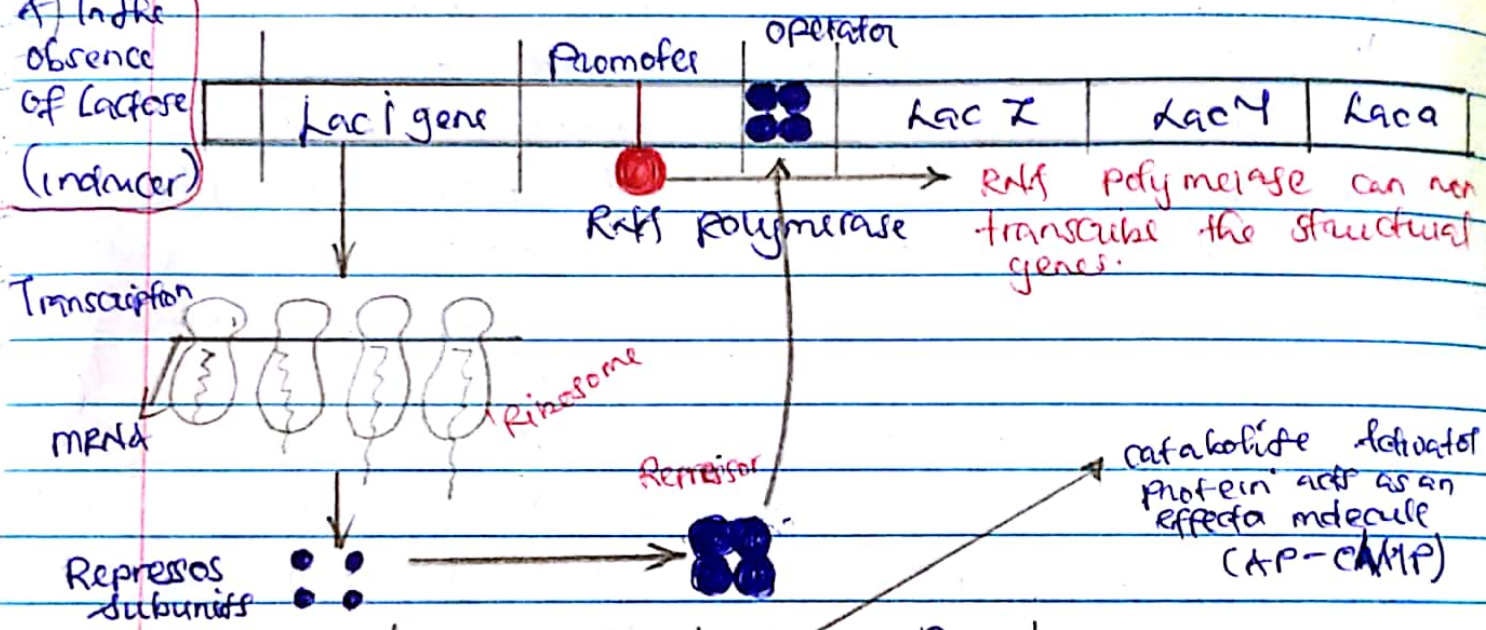 A) In the
absence
of Lactose
(inducer)
Promoter
operator
Lac i gene
Lac Z
Lac Y
Lac a
RNA polymerase
RNA polymerase can non
transcribe the structural
genes.
Transcription
Ribosome
mRNA
Represor
Repressos
subunits
catabolite Activator
protein acts as an
effecta molecule
(AP-CAMP)